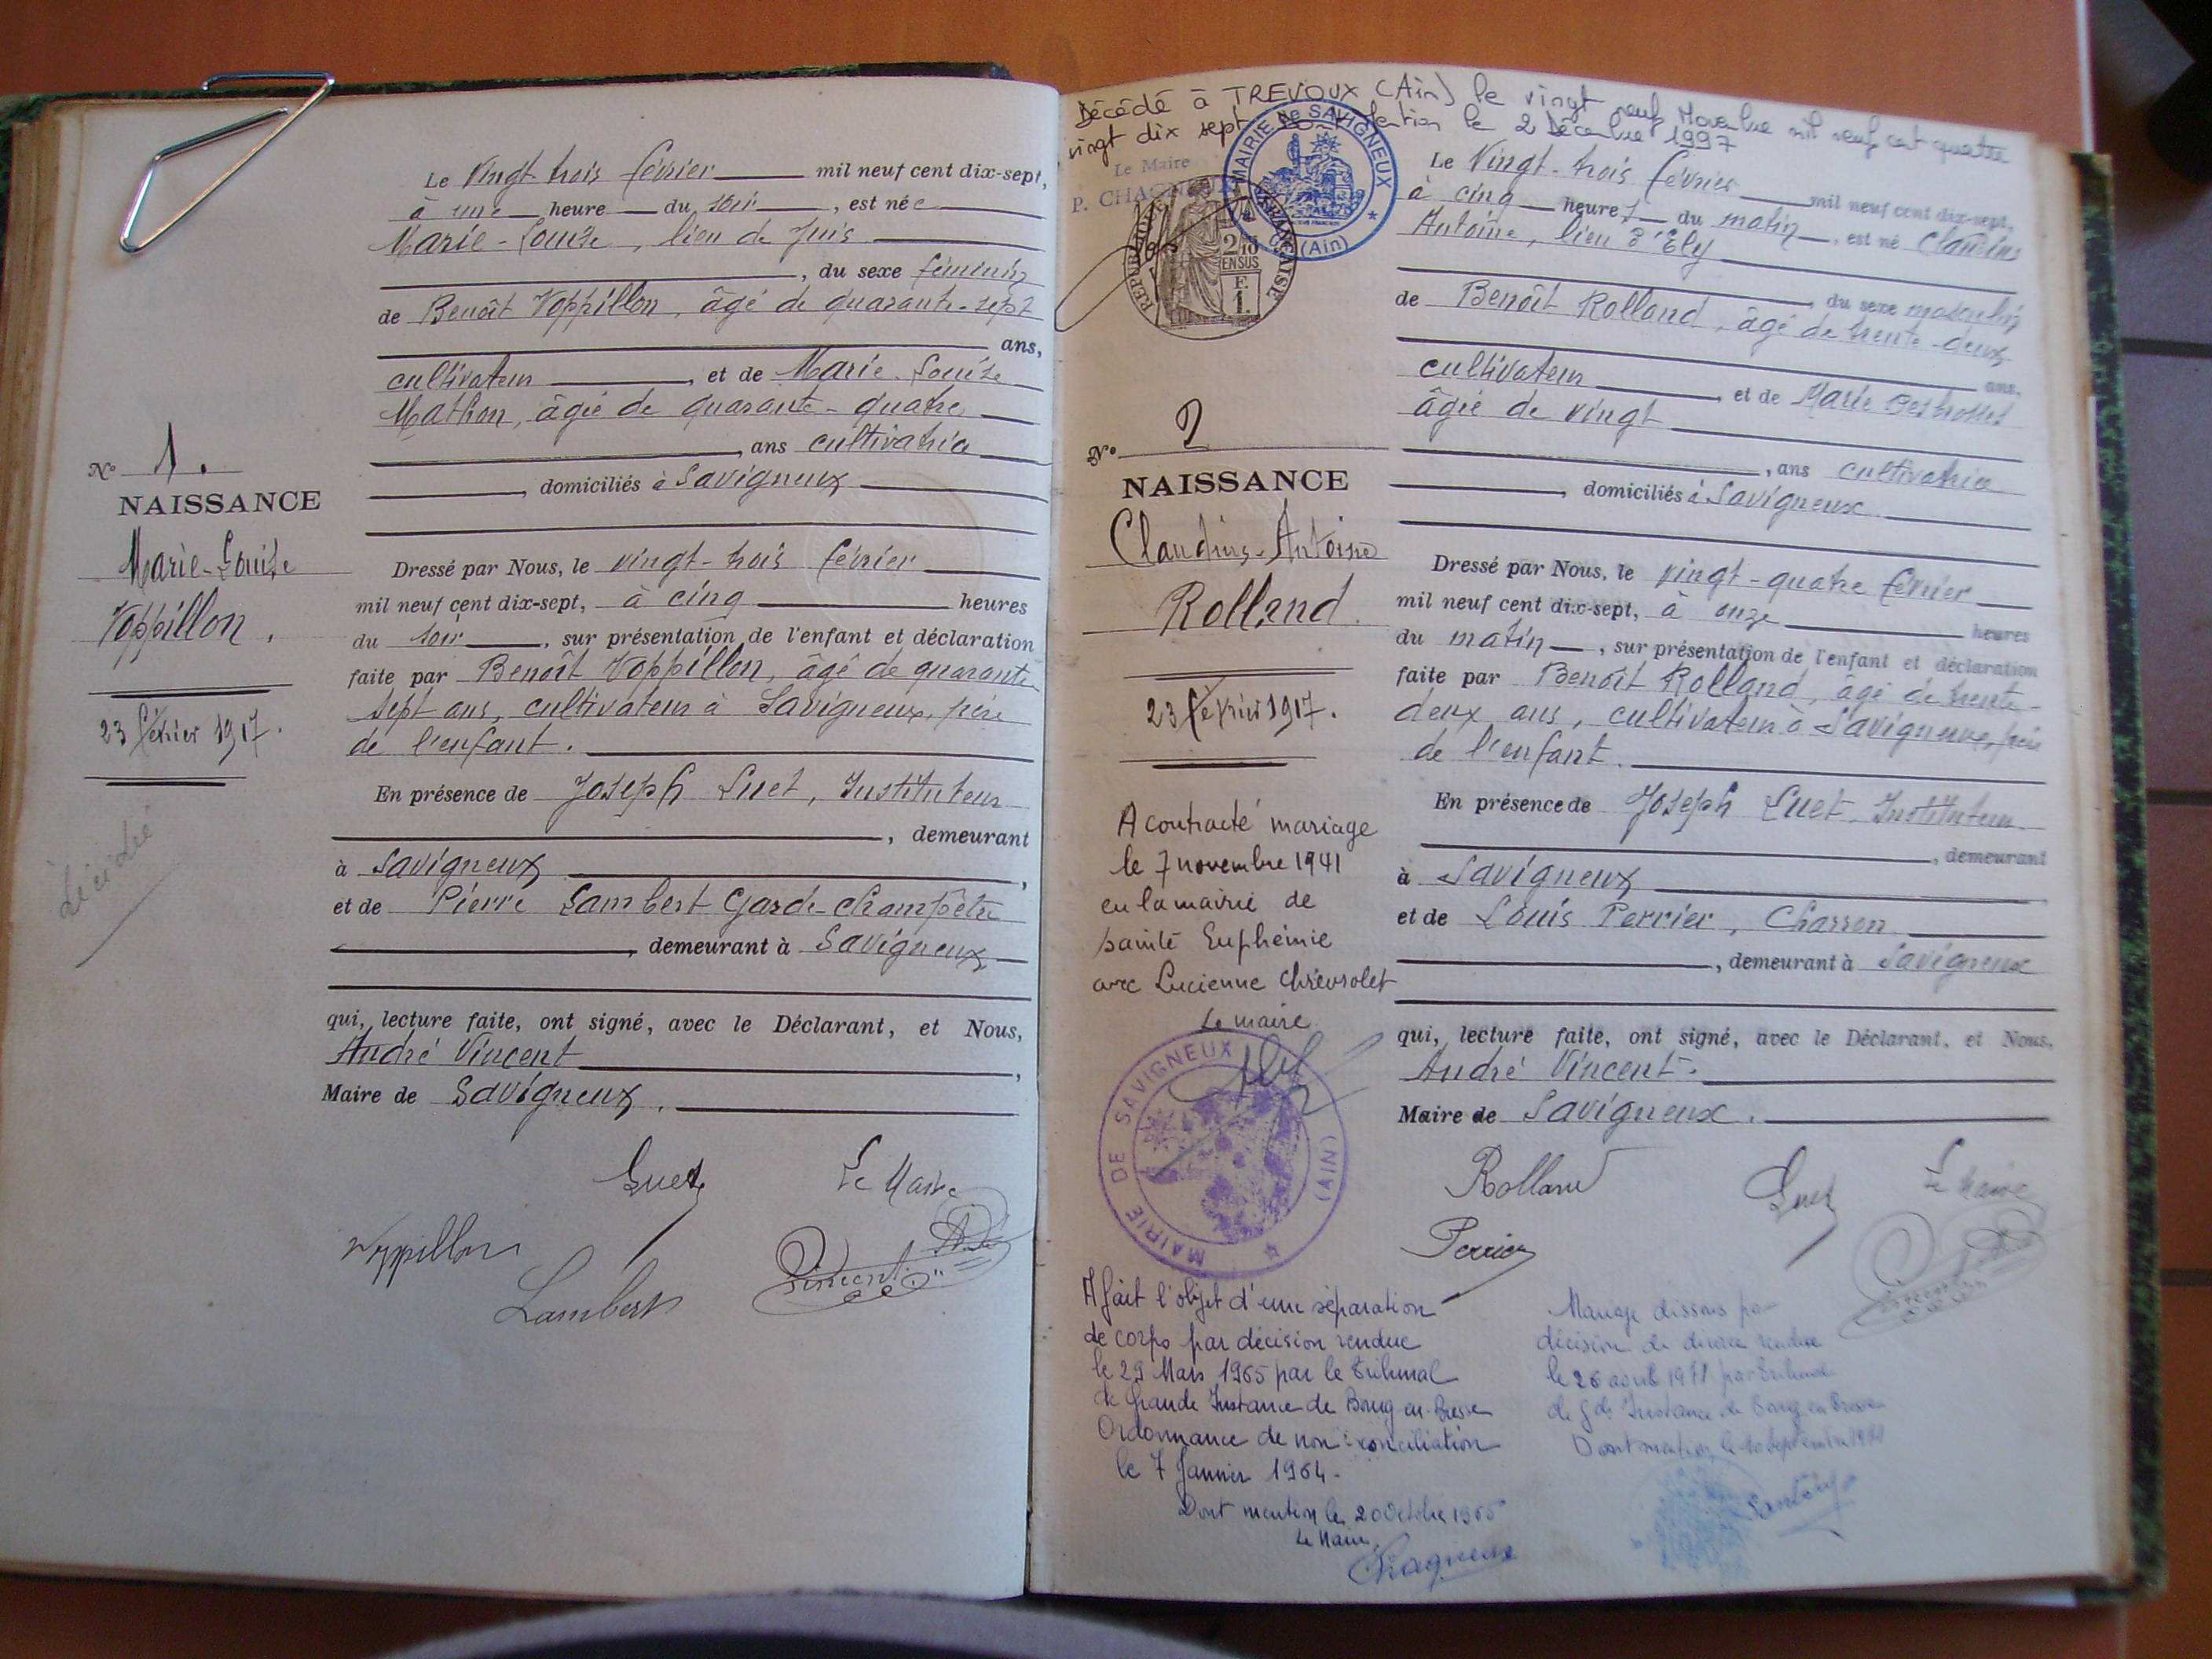 Le Vingt trois février mil neuf cent dix-sept,
à une heure du soir, est née
Marie-Louise, lieu de Juis
, du sexe féminin
de Benoît Voppillon, âgé de quarante-sept
ans,
cultivateur, et de Marie-Louise
Mathon, âgée de quarante-quatre
, ans cultivatrice
, domiciliés à Savigneux
No 1.
NAISSANCE
Marie-Louise
Voppillon.
23 février 1917.
Décédé
Dressé par Nous, le vingt-trois février
mil neuf cent dix-sept, à cinq heures
du soir, sur présentation de l'enfant et déclaration
faite par Benoît Voppillon, âgé de quarante
sept ans, cultivateur à Savigneux, père
de l'enfant.
En présence de Joseph Luet, Instituteur
, demeurant
à Savigneux,
et de Pierre Lambert Garde-Champêtre
, demeurant à Savigneux
qui, lecture faite, ont signé, avec le Déclarant, et Nous,
André Vincent,
Maire de Savigneux.
Luet Le Maire
Voppillon
Lambert
Vincent
Décédé à TREVOUX (Ain) le vingt neuf Novembre mil neuf cent quatre
vingt dix sept mention le 2 Décembre 1997
Le Maire
P. CHAGNEUX
MAIRIE de SAVIGNEUX
(Ain)
REPUBLIQUE FRANÇAISE
2/10
EN SUS
F.
1.
Le Vingt-trois février mil neuf cent dix-sept,
à cinq heures du matin, est né Claudius
Antoine, lieu d'Ely
, du sexe masculin
de Benoît Rolland, âgé de trente-deux
ans,
cultivateur, et de Marie Desbrosses
âgée de vingt
, ans cultivatrice
, domiciliés à Savigneux
No 2
NAISSANCE
Claudius-Antoine
Rolland.
23 février 1917.
A contracté mariage
le 7 novembre 1941
en la mairie de
Sainte Euphémie
avec Lucienne Chevrolet
Le maire
MAIRIE DE SAVIGNEUX (AIN)
Dressé par Nous, le vingt-quatre février
mil neuf cent dix-sept, à onze heures
du matin, sur présentation de l'enfant et déclaration
faite par Benoît Rolland, âgé de trente-
deux ans, cultivateur à Savigneux, père
de l'enfant.
En présence de Joseph Luet, Instituteur
, demeurant
à Savigneux
et de Louis Perrier, Charron
, demeurant à Savigneux
qui, lecture faite, ont signé, avec le Déclarant, et Nous,
André Vincent.
Maire de Savigneux.
Rolland Luet Le Maire
Perrier
Vincent
A fait l'objet d'une séparation
de corps par décision rendue
le 29 Mars 1965 par le Tribunal
de Grande Instance de Bourg-en-Bresse
Ordonnance de non-conciliation
le 7 Janvier 1964.
Dont mention le 20 Octobre 1965
Le Maire,
Chagneux
Mariage dissous par
décision de divorce rendue
le 26 1971 par Tribunal
de Gde Instance de Bourg en Bresse
Dont mention le 10 Septembre 1971